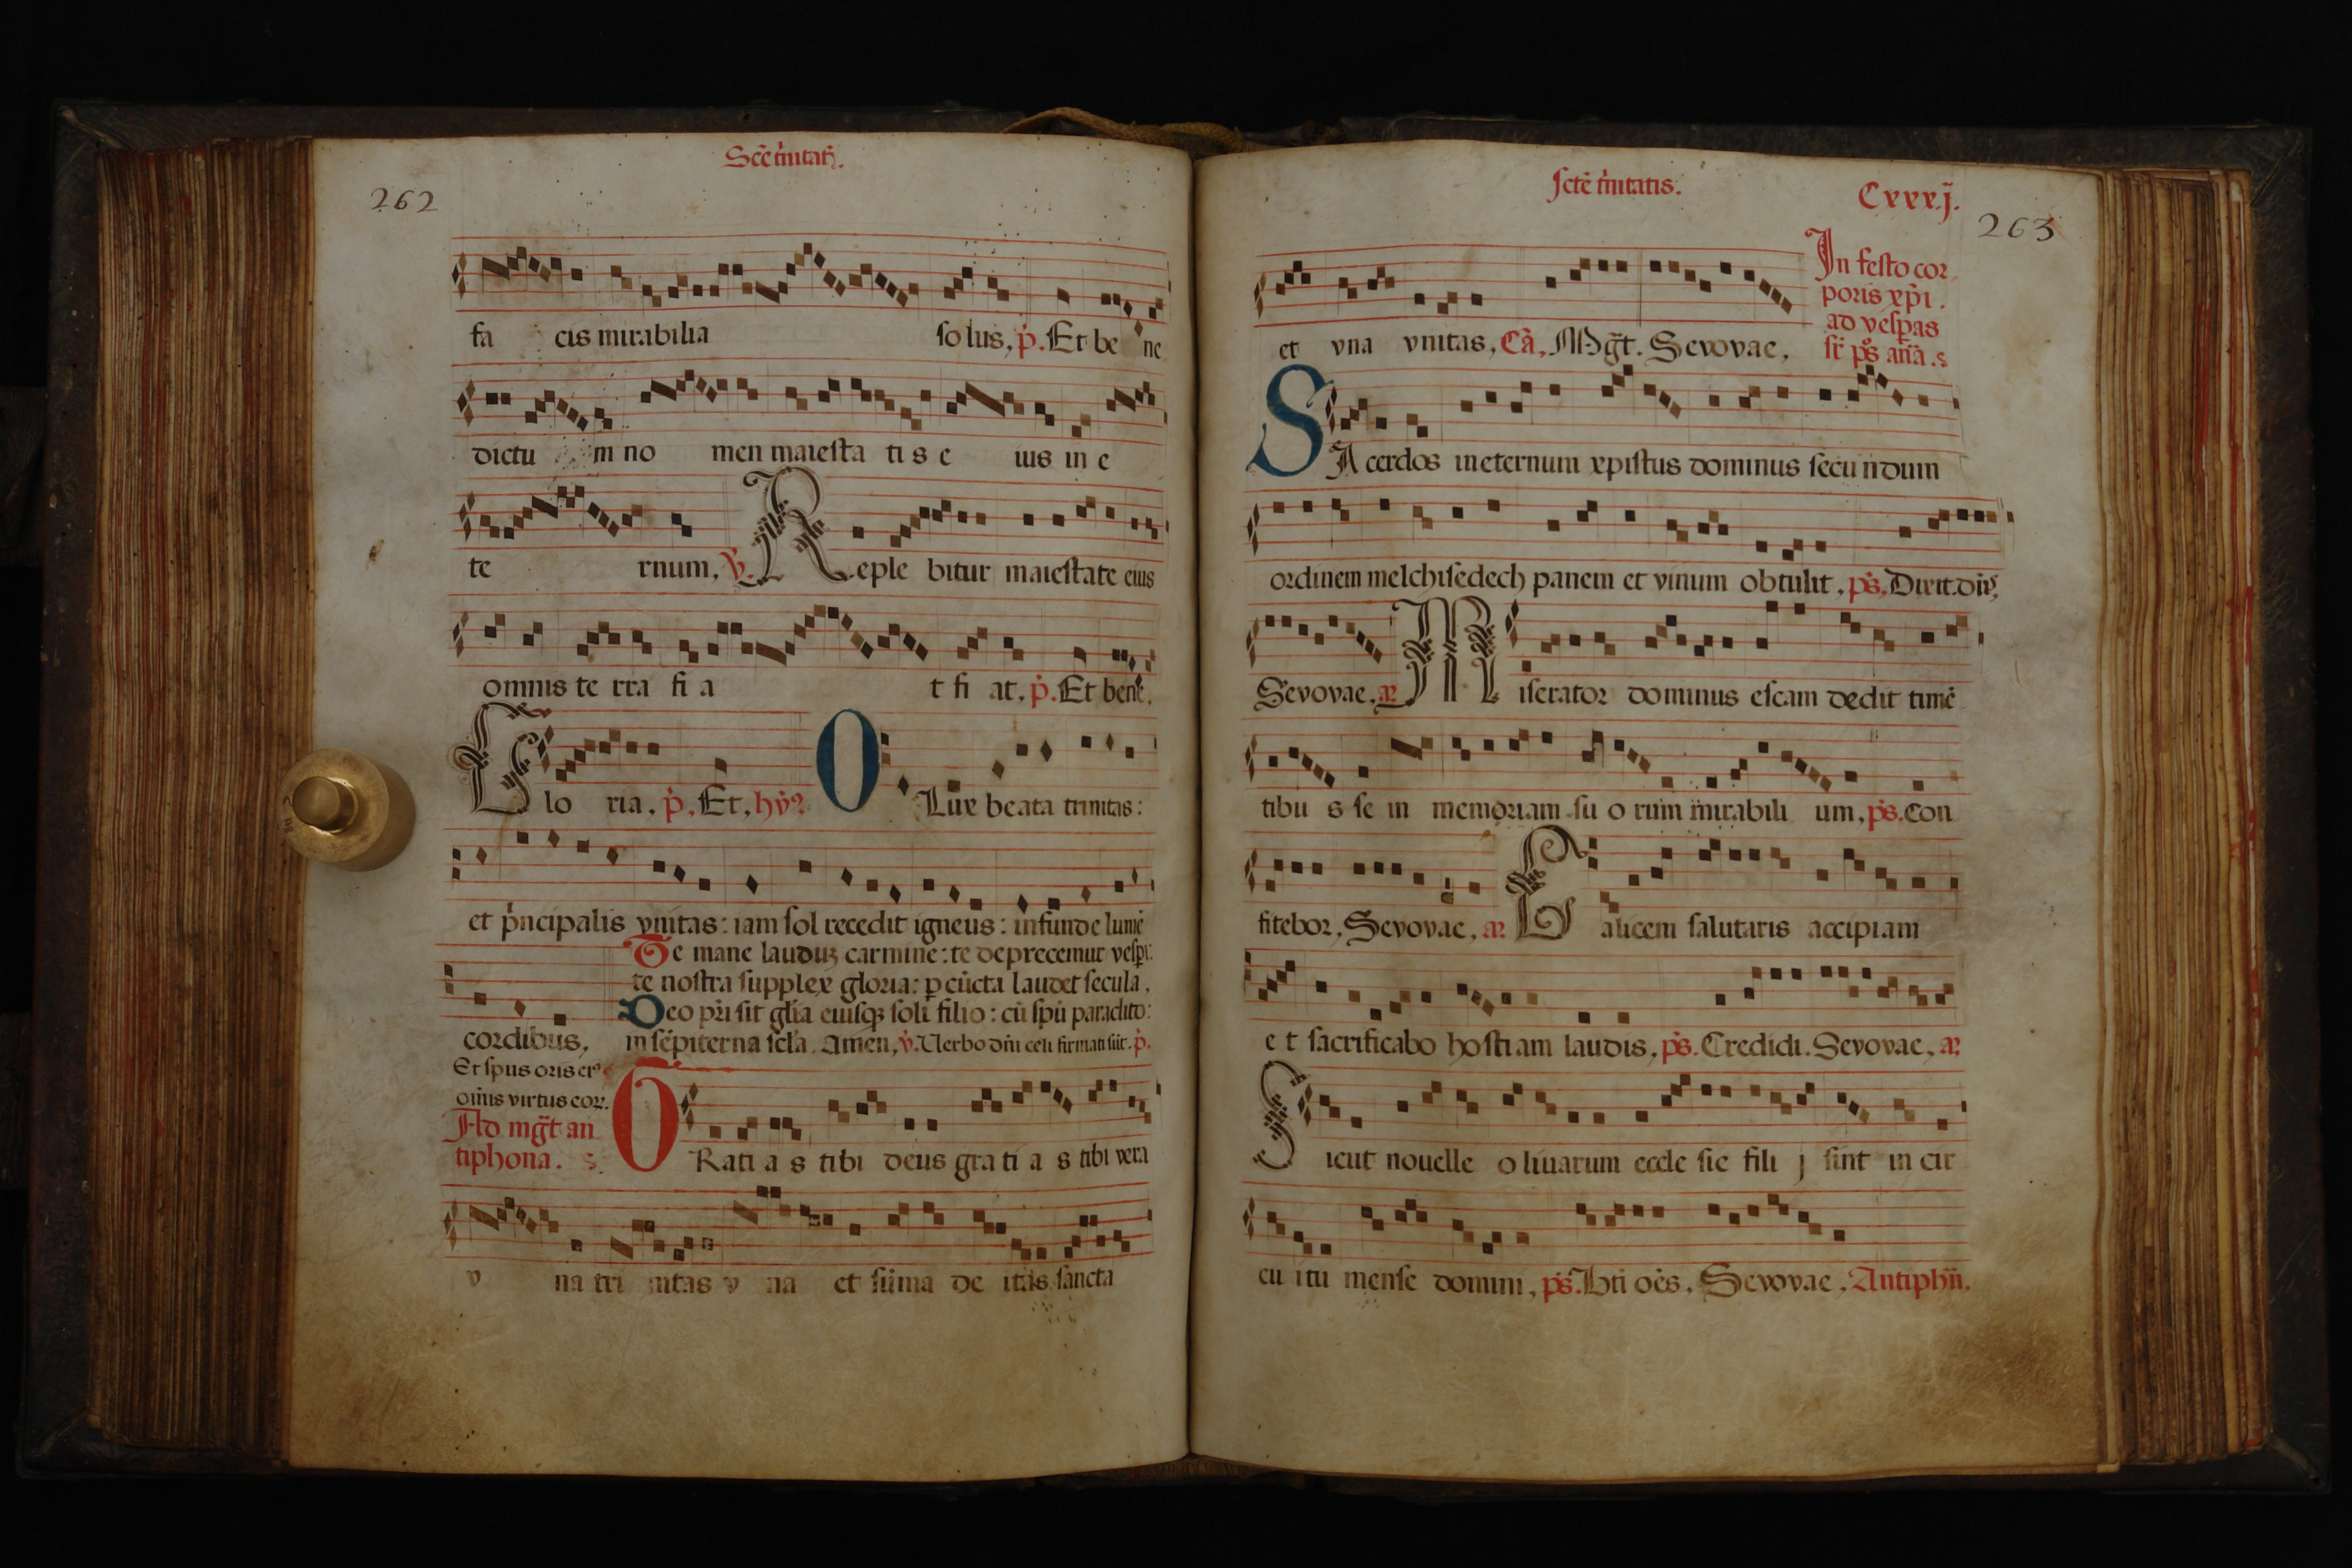 Scē tr̄nitat̄.
262
fa cis mirabilia so lus, p̄. Et be ne
dictu m no men maiesta ti s e ius in e
te rnum, ꝟ. Reple bitur maiestate eius
omnis te rra fi a t fi at. p̄. Et bene.
Glo ria. p̄. Et, hẏ? O Lux beata trinitas:
et pͥncipalis vnitas: iam sol recedit igneus: infunde lumē
Te mane laudūꝫ carmine: te deprecemur vesꝑi:
te nostra supplex gloria: ꝑ cūcta laudet secula.
Deo pr̄i sit glīa eiusqꝫ soli filio: cū spū paraclito:
cordibus, in sēpiterna scl̄a. Amen, ꝟ. Uerbo dn̄i celi firmati sūt. p̄.
Et spus oris eiꝰ
oīnis virtus eoꝝ.
Ad mḡt an
tiphona.
GRati a s tibi deus gra ti a s tibi vera
v na tri nitas v na et sūma de itas sancta
sctē tr̄nitatis. Cxxxj.
263
In festo cor
poris xp̄i.
ad vesꝑas
sr̄ ps̄ añā.
et vna vnitas, Cā, Mḡt. Sevovae,
SAcerdos ineternum xpistus dominus secundum
ordinem melchisedech panem et vinum obtulit, ps̄, Dixit. dn̄s,
Sevovae, añ Miserator dominus escam dedit timē
tibu s se in memoriam su o rum mirabili um, ps̄. Con
fitebor, Sevovae, añ Calicem salutaris accipiam
e t sacrificabo hostiam laudis, ps̄. Credidi. Sevovae, añ
Sicut nouelle o liuarum eccle sie fili j sint in cir
cu itu mense domini, ps̄. Bt̄i oēs, Sevovae, Antiphn̄.